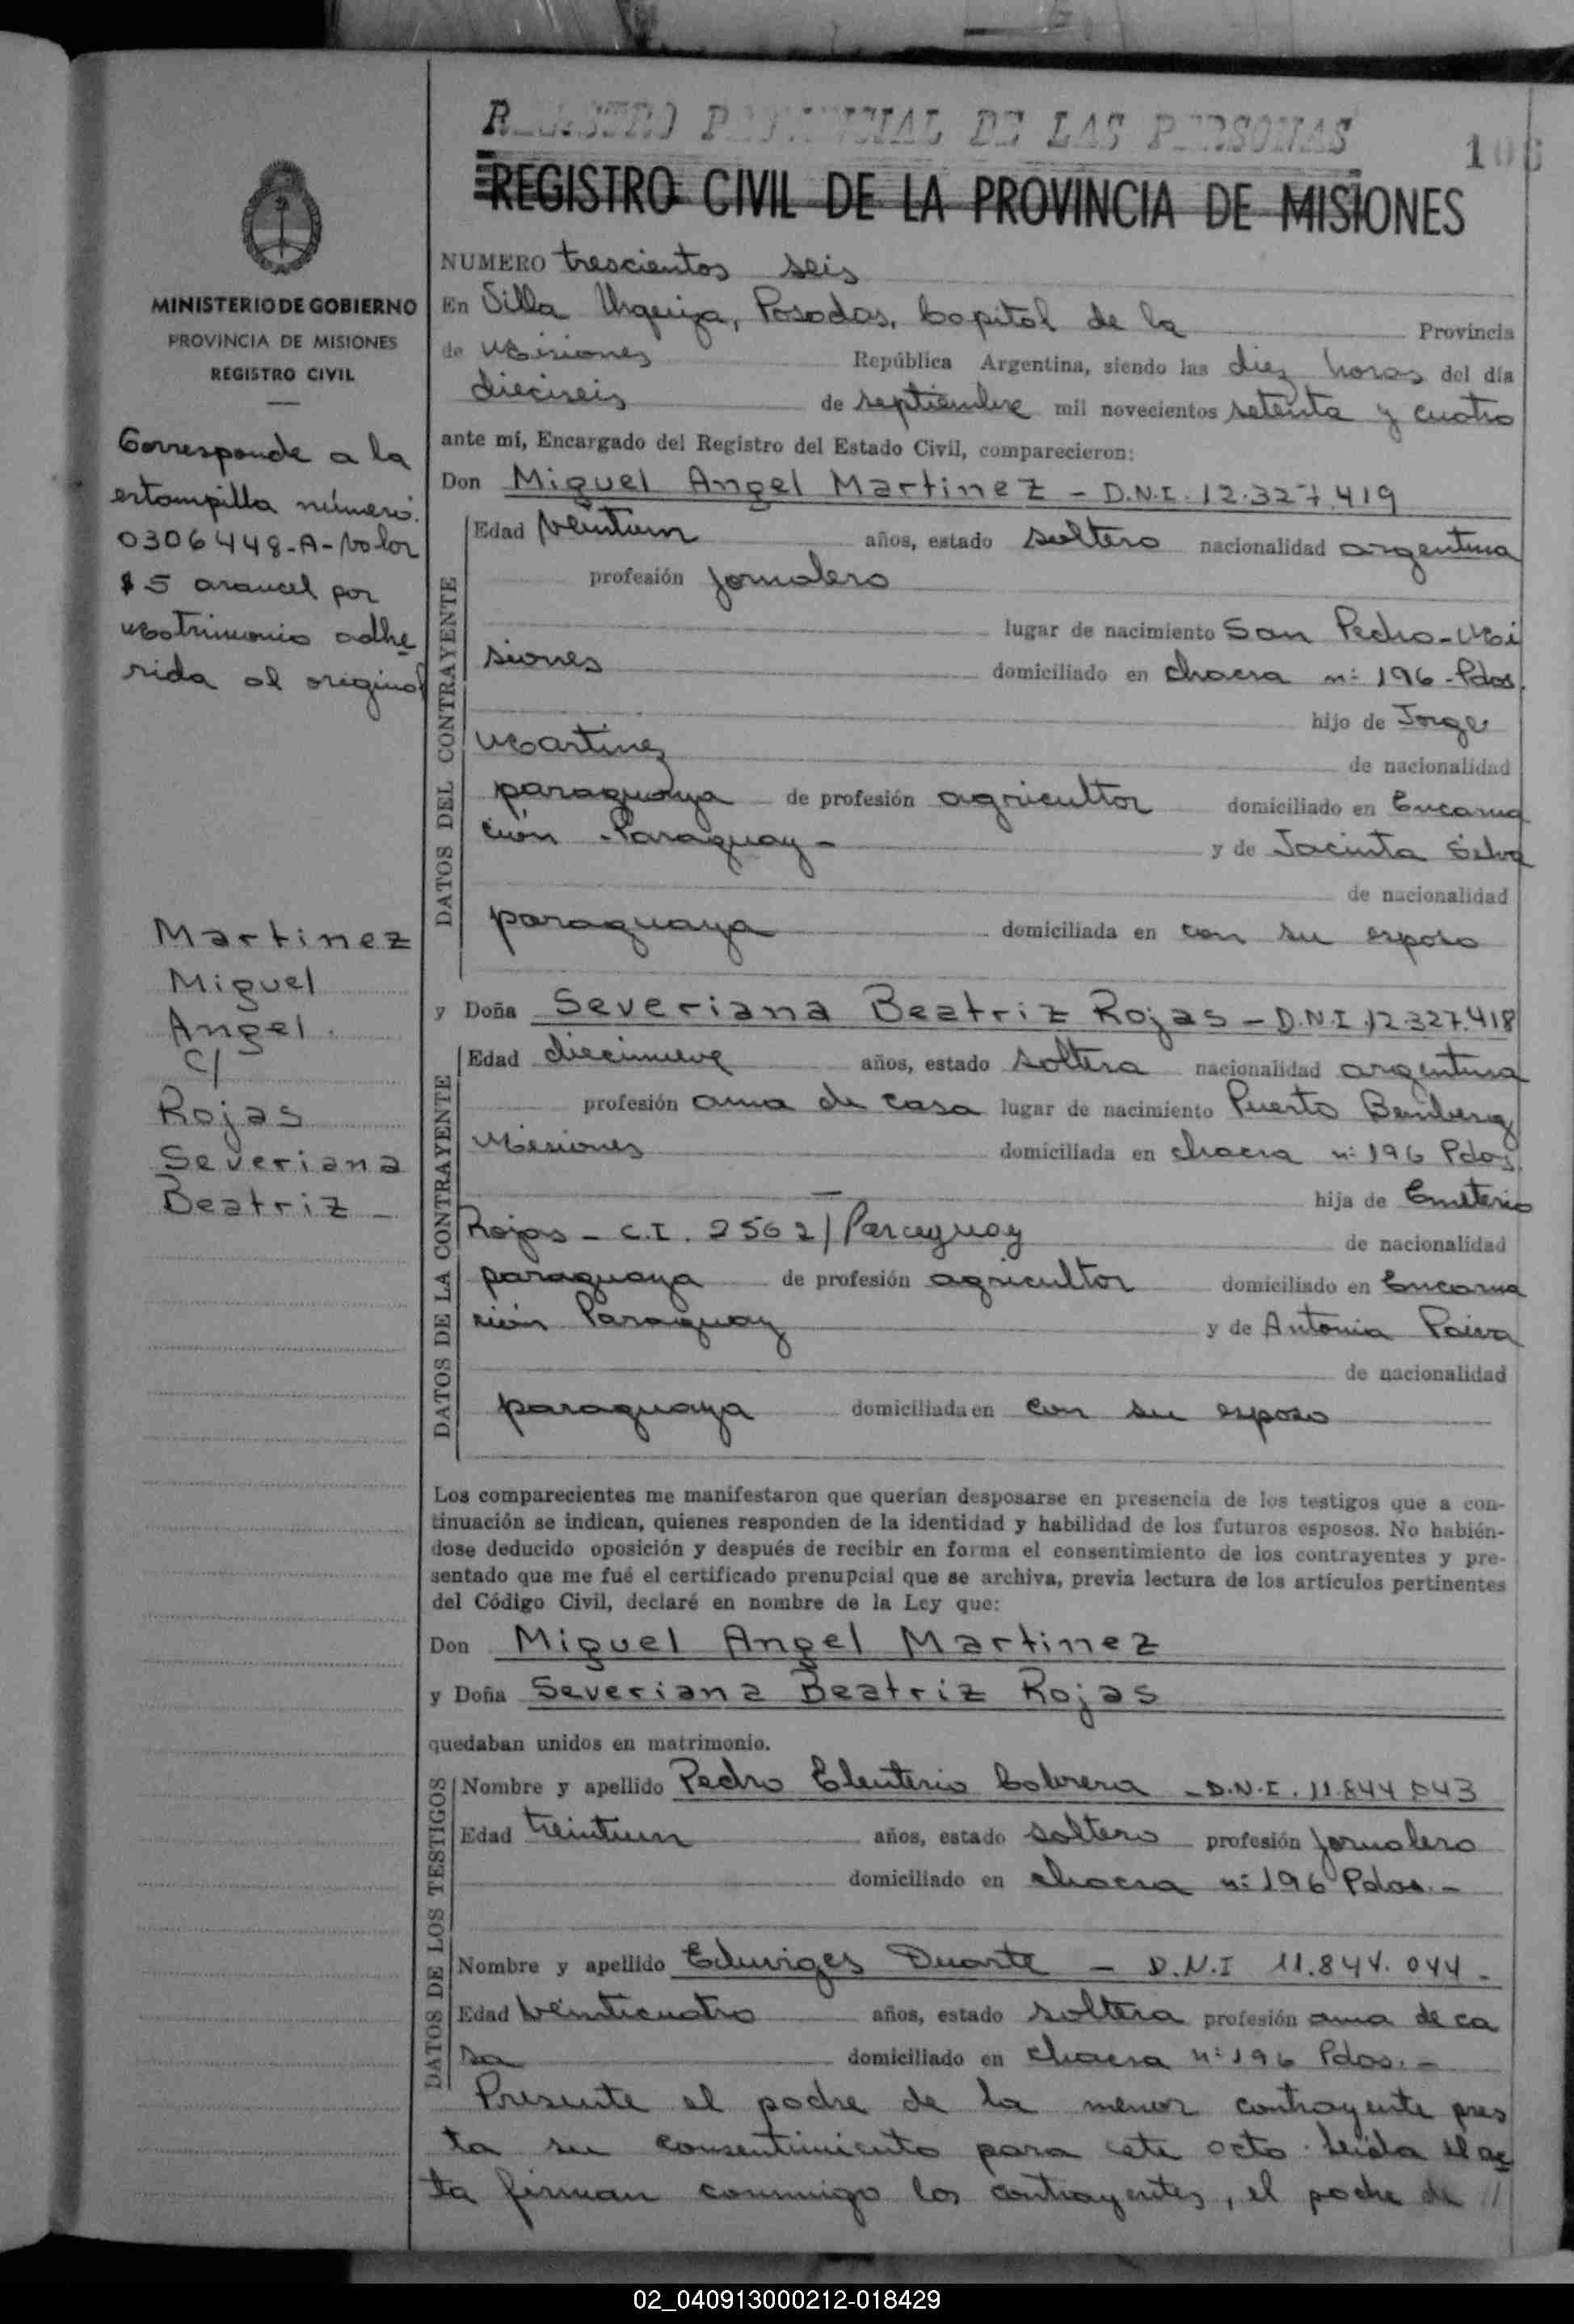 REGISTRO PROVINCIAL DE LAS PERSONAS
REGISTRO CIVIL DE LA PROVINCIA DE MISIONES
MINISTERIO DE GOBIERNO
PROVINCIA DE MISIONES
REGISTRO CIVIL
Corresponde a la
estampilla número.
0306448-A-Valor
$5 arancel por
Matrimonio adhe
rida al original
Martinez
Miguel
Angel.
c/
Rojas
Severiana
Beatriz -
NUMERO trescientos seis
En Villa Urquiza, Posadas, Capital de la Provincia
de Misiones República Argentina, siendo las diez horas del día
dieciseis de septiembre mil novecientos setenta y cuatro
ante mí, Encargado del Registro del Estado Civil, comparecieron:
Don Miguel Angel Martinez - D.N.I. 12.327.419
DATOS DEL CONTRAYENTE
Edad veintiun años, estado soltero nacionalidad argentina
profesión jornalero
lugar de nacimiento San Pedro-Mi
siones domiciliado en chacra n: 196-Pdas.
hijo de Jorge
Martinez de nacionalidad
paraguaya de profesión agricultor domiciliado en Encarna
ción -Paraguay- y de Jacinta Silva
de nacionalidad
paraguaya domiciliada en con su esposo
y Doña Severiana Beatriz Rojas - D.N.I. 12.327.418
DATOS DE LA CONTRAYENTE
Edad diecinueve años, estado soltera nacionalidad argentina
profesión ama de casa lugar de nacimiento Puerto Bemberg
Misiones domiciliada en chacra n: 196 Pdas.
hija de Emeterio
Rojas - C.I. 2562/Paraguay de nacionalidad
paraguaya de profesión agricultor domiciliado en Encarna
ción Paraguay y de Antonia Paiva
de nacionalidad
paraguaya domiciliada en con su esposo
Los comparecientes me manifestaron que querían desposarse en presencia de los testigos que a con-
tinuación se indican, quienes responden de la identidad y habilidad de los futuros esposos. No habién-
dose deducido oposición y después de recibir en forma el consentimiento de los contrayentes y pre-
sentado que me fué el certificado prenupcial que se archiva, previa lectura de los artículos pertinentes
del Código Civil, declaré en nombre de la Ley que:
Don Miguel Angel Martinez
y Doña Severiana Beatriz Rojas
quedaban unidos en matrimonio.
DATOS DE LOS TESTIGOS
Nombre y apellido Pedro Eleuterio Cabrera - D.N.I. 11.844.043
Edad treintiun años, estado soltero profesión jornalero
domiciliado en chacra n: 196 Pdas.-
Nombre y apellido Eduviges Duarte - D.N.I 11.844.044-
Edad veinticuatro años, estado soltera profesión ama de ca
sa domiciliado en chacra n: 196 Pdas.-
Presente el padre de la menor contrayente pres
ta su consentimiento para este acto. Leída el ac
ta firman conmigo los contrayentes, el padre de //
02_040913000212-018429